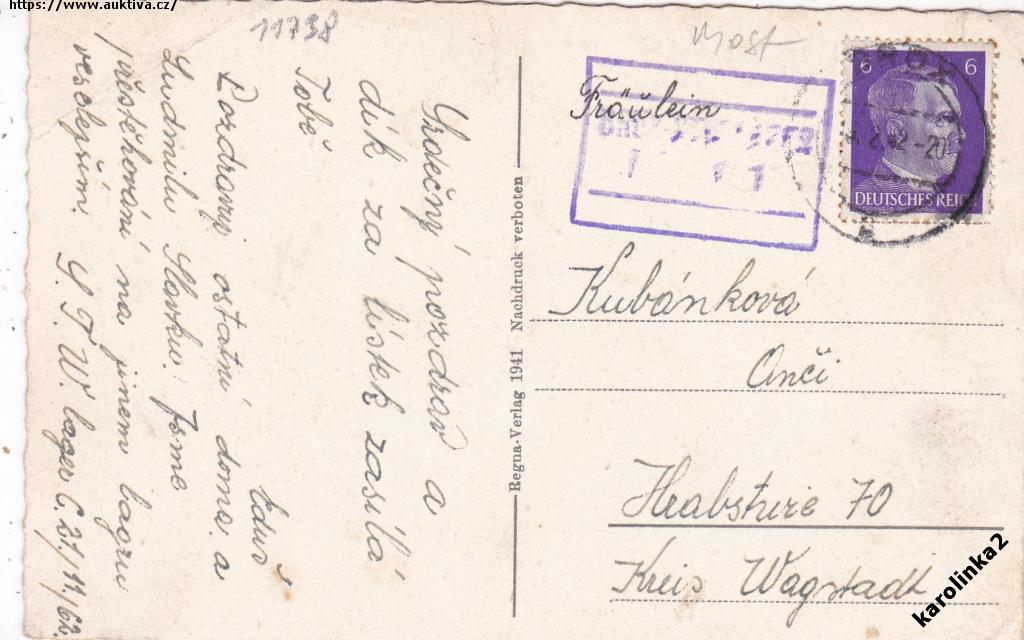 https://www.auktiva.cz/
11738
Srdečný pozdrav a
dík za lístek zasílá
Tobě
Eduš
Pozdravuj ostatní doma a
Ludmilu Slavku. Jsme
přestěhovaní na jinem lagru
veselejším.
S.T.W. lager C. 21/11/62.
Regna-Verlag 1941 Nachdruck verboten
Most
Fräulein
6 6
BRÜX
2.42-20
DEUTSCHES REICH
Kubánková
Anči
Hrabstvie 70
Kreis Wagstadt
karolinka2